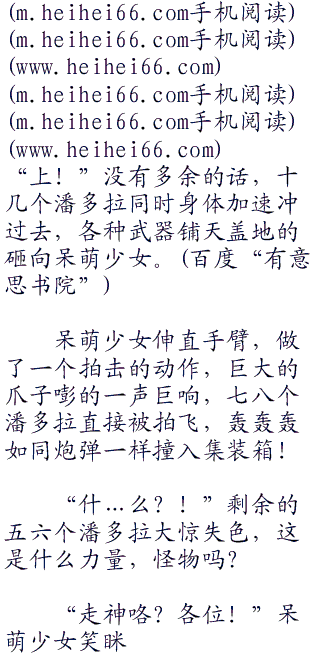 (m.heihei66.com手机阅读)
(m.heihei66.com手机阅读)
(www.heihei66.com)
(m.heihei66.com手机阅读)
(m.heihei66.com手机阅读)
(www.heihei66.com)
“上！”没有多余的话，十
几个潘多拉同时身体加速冲
过去，各种武器铺天盖地的
砸向呆萌少女。(百度“有意
思书院”)
呆萌少女伸直手臂，做
了一个拍击的动作，巨大的
爪子嘭的一声巨响，七八个
潘多拉直接被拍飞，轰轰轰
如同炮弹一样撞入集装箱！
“什…么？！”剩余的
五六个潘多拉大惊失色，这
是什么力量，怪物吗？
“走神咯？各位！”呆
萌少女笑眯